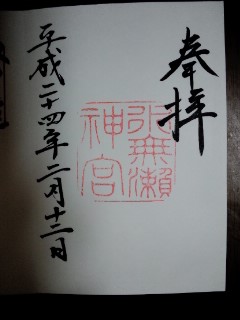 奉拝
水無瀬
神宮
平成二十四年二月十二日